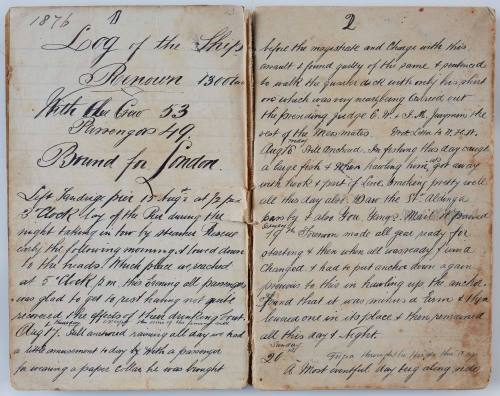 1876
1
Log of the Ship
Renown 1300 tons
With Crew 53
Passengers 49
Bound for London
Left Sandridge pier 15 Augst at ½ past
3 o'clock lay off the Pier during the
night taking in tow by steamer Rescue
early the following morning & towed down
to the heads. Which place we reached
at 5 o'clock p.m. this evening all passengers
was glad to get to rest having not quite
recovered the effects of their
Thursday
Augt 17. Still anchored raining all day we had
a little amusement to day by with a passenger
for wearing a paper he was brought
2
before the magistrate and Charge with this
assault & found guilty of the same & sentenced
to walk the quarter deck with only his shirt
on which was very near being carried out
the presiding Judge
rest of the Messmates.
Augt 18 Still anchored. In fishing this day caught
a large fish & when hauling him got away
with hook & part of line. Smoking pretty well
all this day also. Saw the St. Aldinga
pass by & also Mail. It
19th Forenoon made all gear ready for
starting & then when all was ready wind
changed & had to put anchor down again
previous to this in hawling up the anchor
found that it was minus a & they
one in its place & then remained
all this day & night.
Sunday
20
A Most eventful day